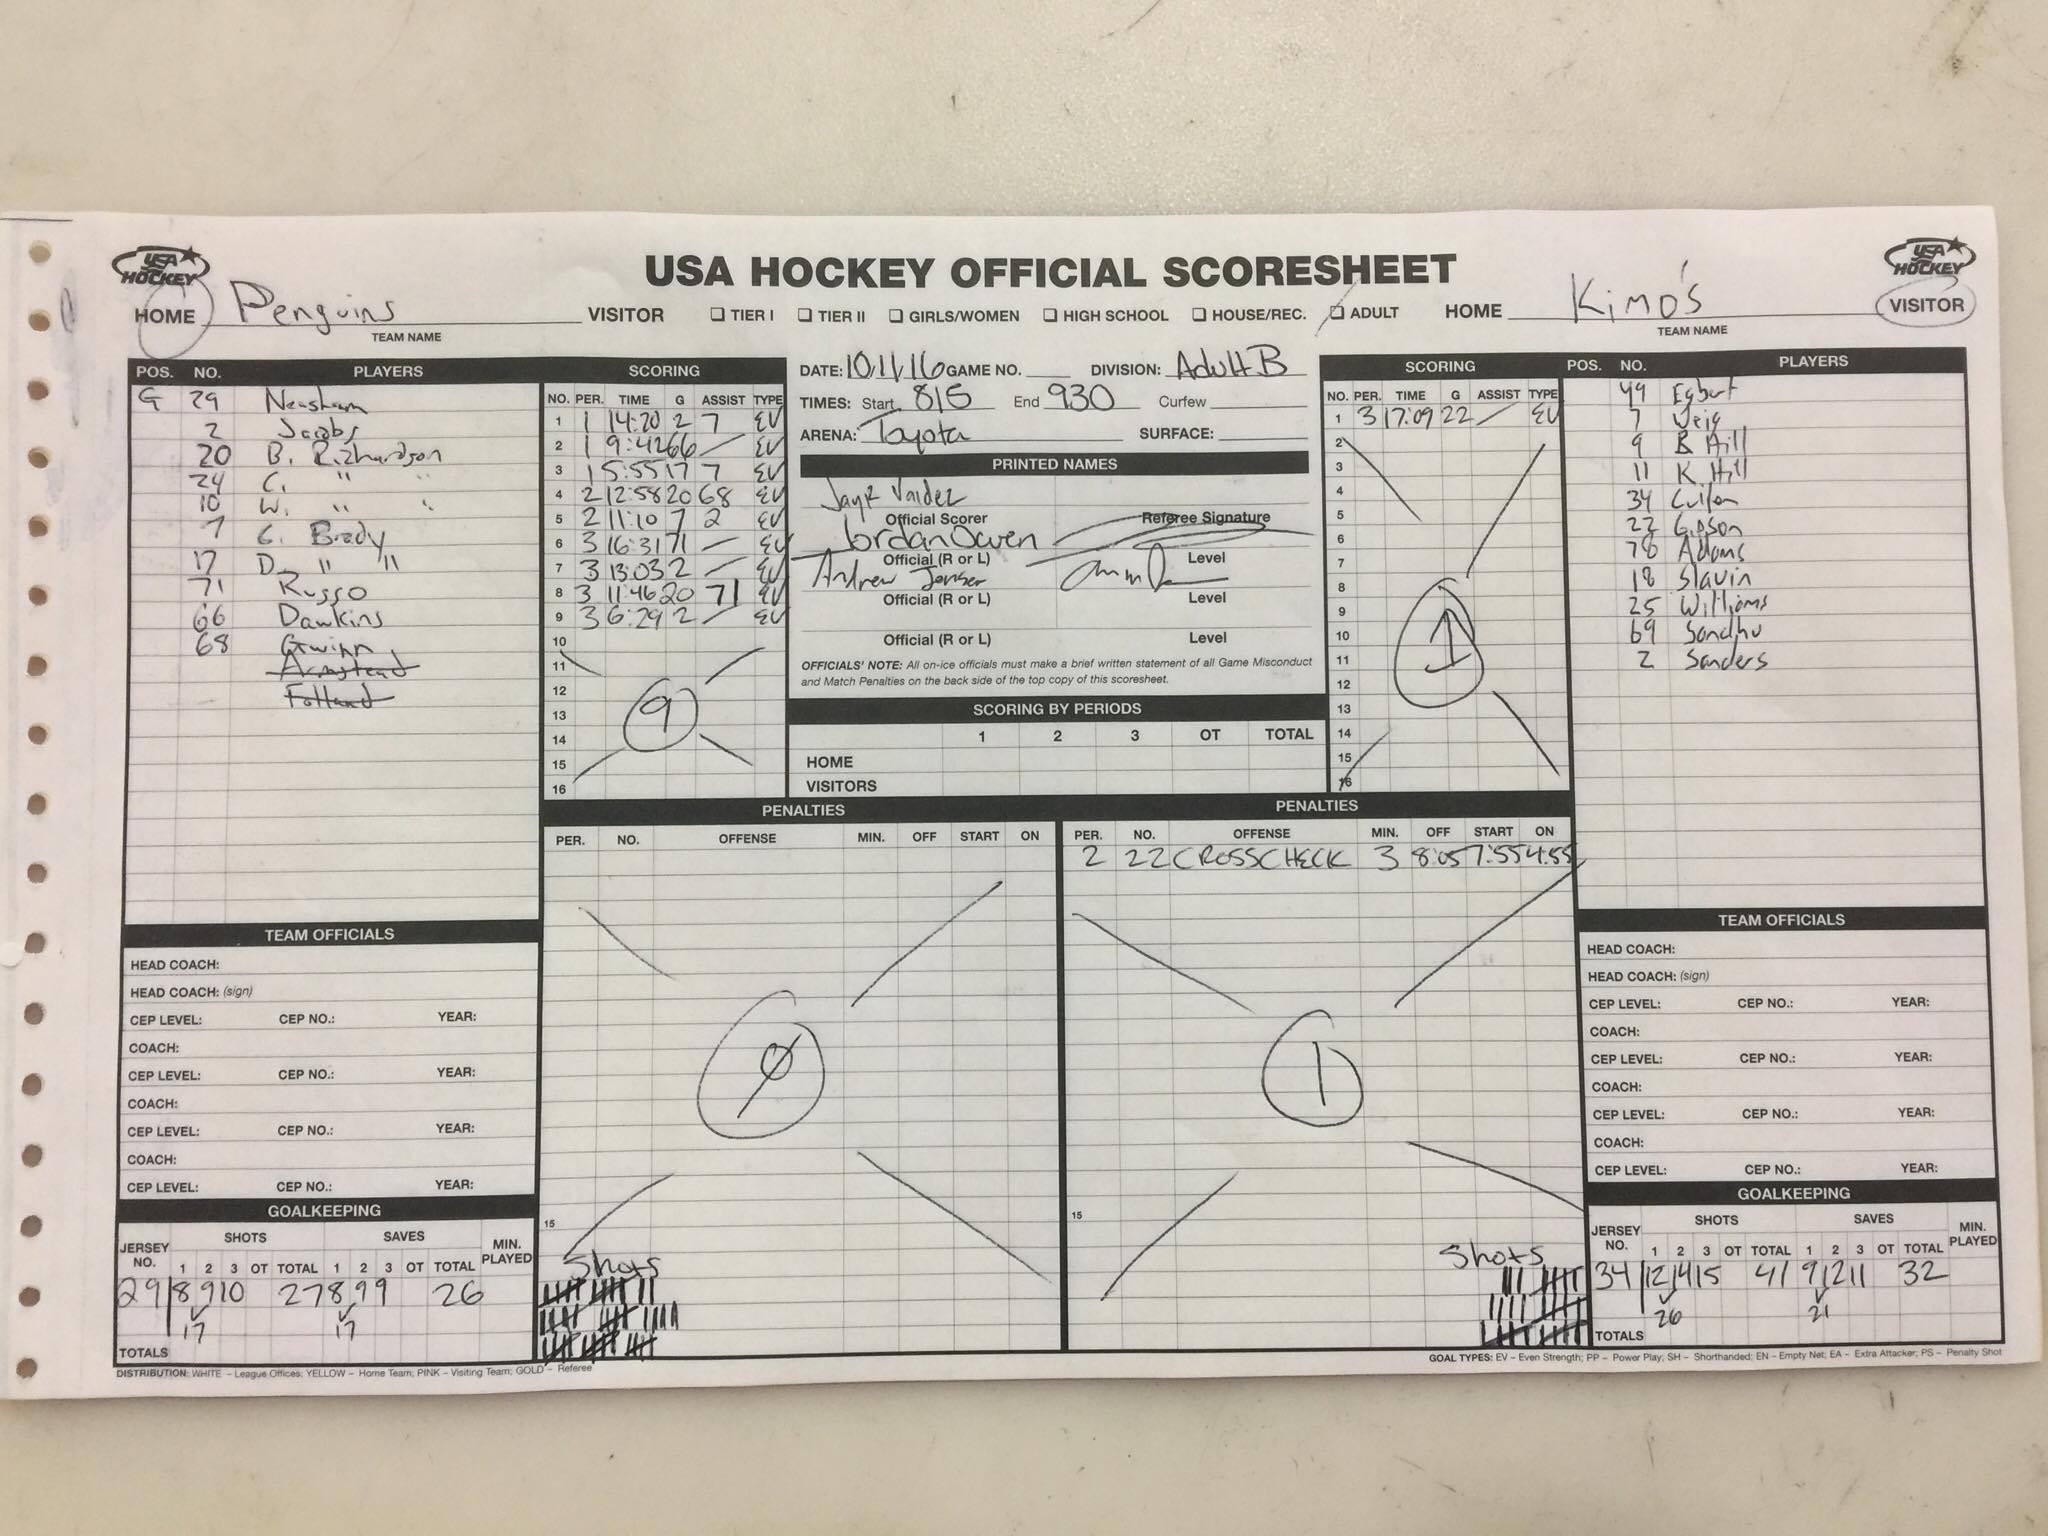 USA HOCKEY
USA HOCKEY OFFICIAL SCORESHEET
USA HOCKEY
HOME Penguins VISITOR
TEAM NAME
☐ TIER I ☐ TIER II ☐ GIRLS/WOMEN ☐ HIGH SCHOOL ☐ HOUSE/REC. ☐ ADULT
HOME Kimo's VISITOR
TEAM NAME
POS. NO. PLAYERS
G 29 Neasham
2 Jacobs
20 B. Richardson
24 C. " "
10 W. " "
7 G. Brady
17 D. " "
71 Russo
66 Dawkins
68 Gwinn
Armstead
SCORING
NO. PER. TIME G ASSIST TYPE
1 1 14:20 2 7 EV
2 1 9:42 66 — EV
3 1 5:55 17 7 EV
4 2 12:58 20 68 EV
5 2 11:10 7 2 EV
6 3 16:31 71 — EV
7 3 13:03 2 — EV
8 3 11:46 20 71 EV
9 3 6:29 2 — EV
10
11
12
13
14
15
16
9
DATE: 10/1/16 GAME NO. DIVISION: Adult B
TIMES: Start 815 End 930 Curfew
ARENA: Toyota SURFACE:
PRINTED NAMES
Jayr Valdez
Official Scorer Referee Signature
Jordan Owen
Official (R or L) Level
Andrew Jenser
Official (R or L) Level
Official (R or L) Level
OFFICIALS' NOTE: All on-ice officials must make a brief written statement of all Game Misconduct
and Match Penalties on the back side of the top copy of this scoresheet.
SCORING BY PERIODS
1 2 3 OT TOTAL
HOME
VISITORS
SCORING
NO. PER. TIME G ASSIST TYPE
1 3 17:09 22 — EV
2
3
4
5
6
7
8
9
10
11
12
13
14
15
16
1
POS. NO. PLAYERS
49 Egbert
7 Weig
9 B Hill
11 K Hill
34 Cullen
22 Gibson
78 Adams
18 Slavin
25 Williams
69 Sandhu
2 Sanders
PENALTIES
PER. NO. OFFENSE MIN. OFF START ON
0
15
Shots
PENALTIES
PER. NO. OFFENSE MIN. OFF START ON
2 22 CROSSCHECK 3 8:05 7:55 4:55
1
15
Shots
TEAM OFFICIALS
HEAD COACH:
HEAD COACH: (sign)
CEP LEVEL: CEP NO.: YEAR:
COACH:
CEP LEVEL: CEP NO.: YEAR:
COACH:
CEP LEVEL: CEP NO.: YEAR:
COACH:
CEP LEVEL: CEP NO.: YEAR:
GOALKEEPING
SHOTS SAVES
JERSEY NO. 1 2 3 OT TOTAL 1 2 3 OT TOTAL MIN. PLAYED
29 8 9 10 27 8 9 9 26
17 17
TOTALS
TEAM OFFICIALS
HEAD COACH:
HEAD COACH: (sign)
CEP LEVEL: CEP NO.: YEAR:
COACH:
CEP LEVEL: CEP NO.: YEAR:
COACH:
CEP LEVEL: CEP NO.: YEAR:
COACH:
CEP LEVEL: CEP NO.: YEAR:
GOALKEEPING
SHOTS SAVES
JERSEY NO. 1 2 3 OT TOTAL 1 2 3 OT TOTAL MIN. PLAYED
34 12 14 15 41 9 12 11 32
26 21
TOTALS
DISTRIBUTION: WHITE – League Offices; YELLOW – Home Team; PINK – Visiting Team; GOLD – Referee
GOAL TYPES: EV – Even Strength; PP – Power Play; SH – Shorthanded; EN – Empty Net; EA – Extra Attacker; PS – Penalty Shot